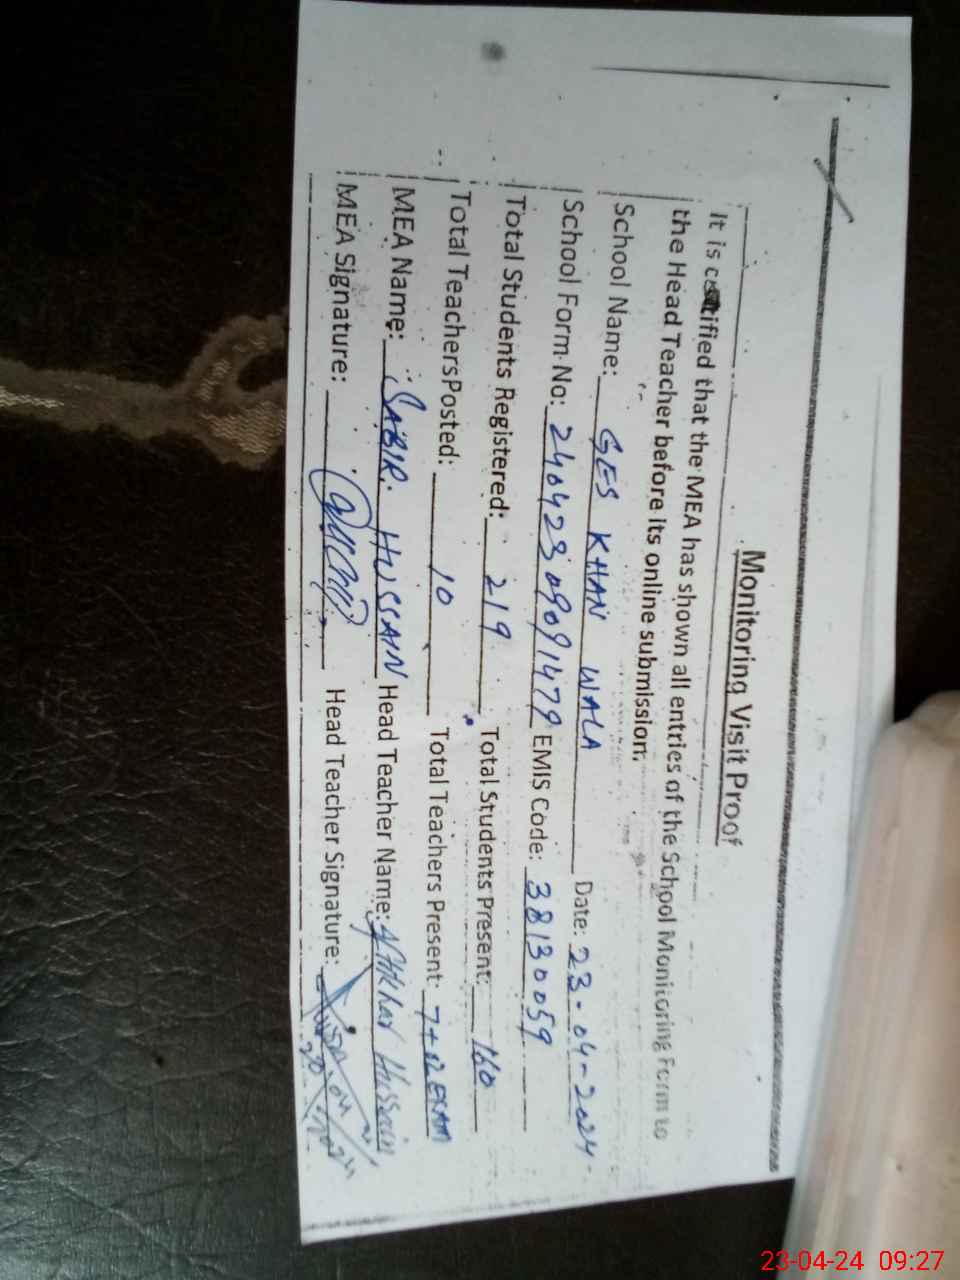 Monitoring Visit Proof
It is certified that the MEA has shown all entries of the School Monitoring Form to
the Head Teacher before its online submission.
School Name: GES KHAN WALA Date: 23-04-2024
School Form No: 24042309091479 EMIS Code: 38130059
Total Students Registered: 219 Total Students Present: 160
Total Teachers Posted: 10 Total Teachers Present: 7+
MEA Name: SABIR HUSSAIN Head Teacher Name: Iftikhar Hussain
MEA Signature: Head Teacher Signature:
23-04-24 09:27